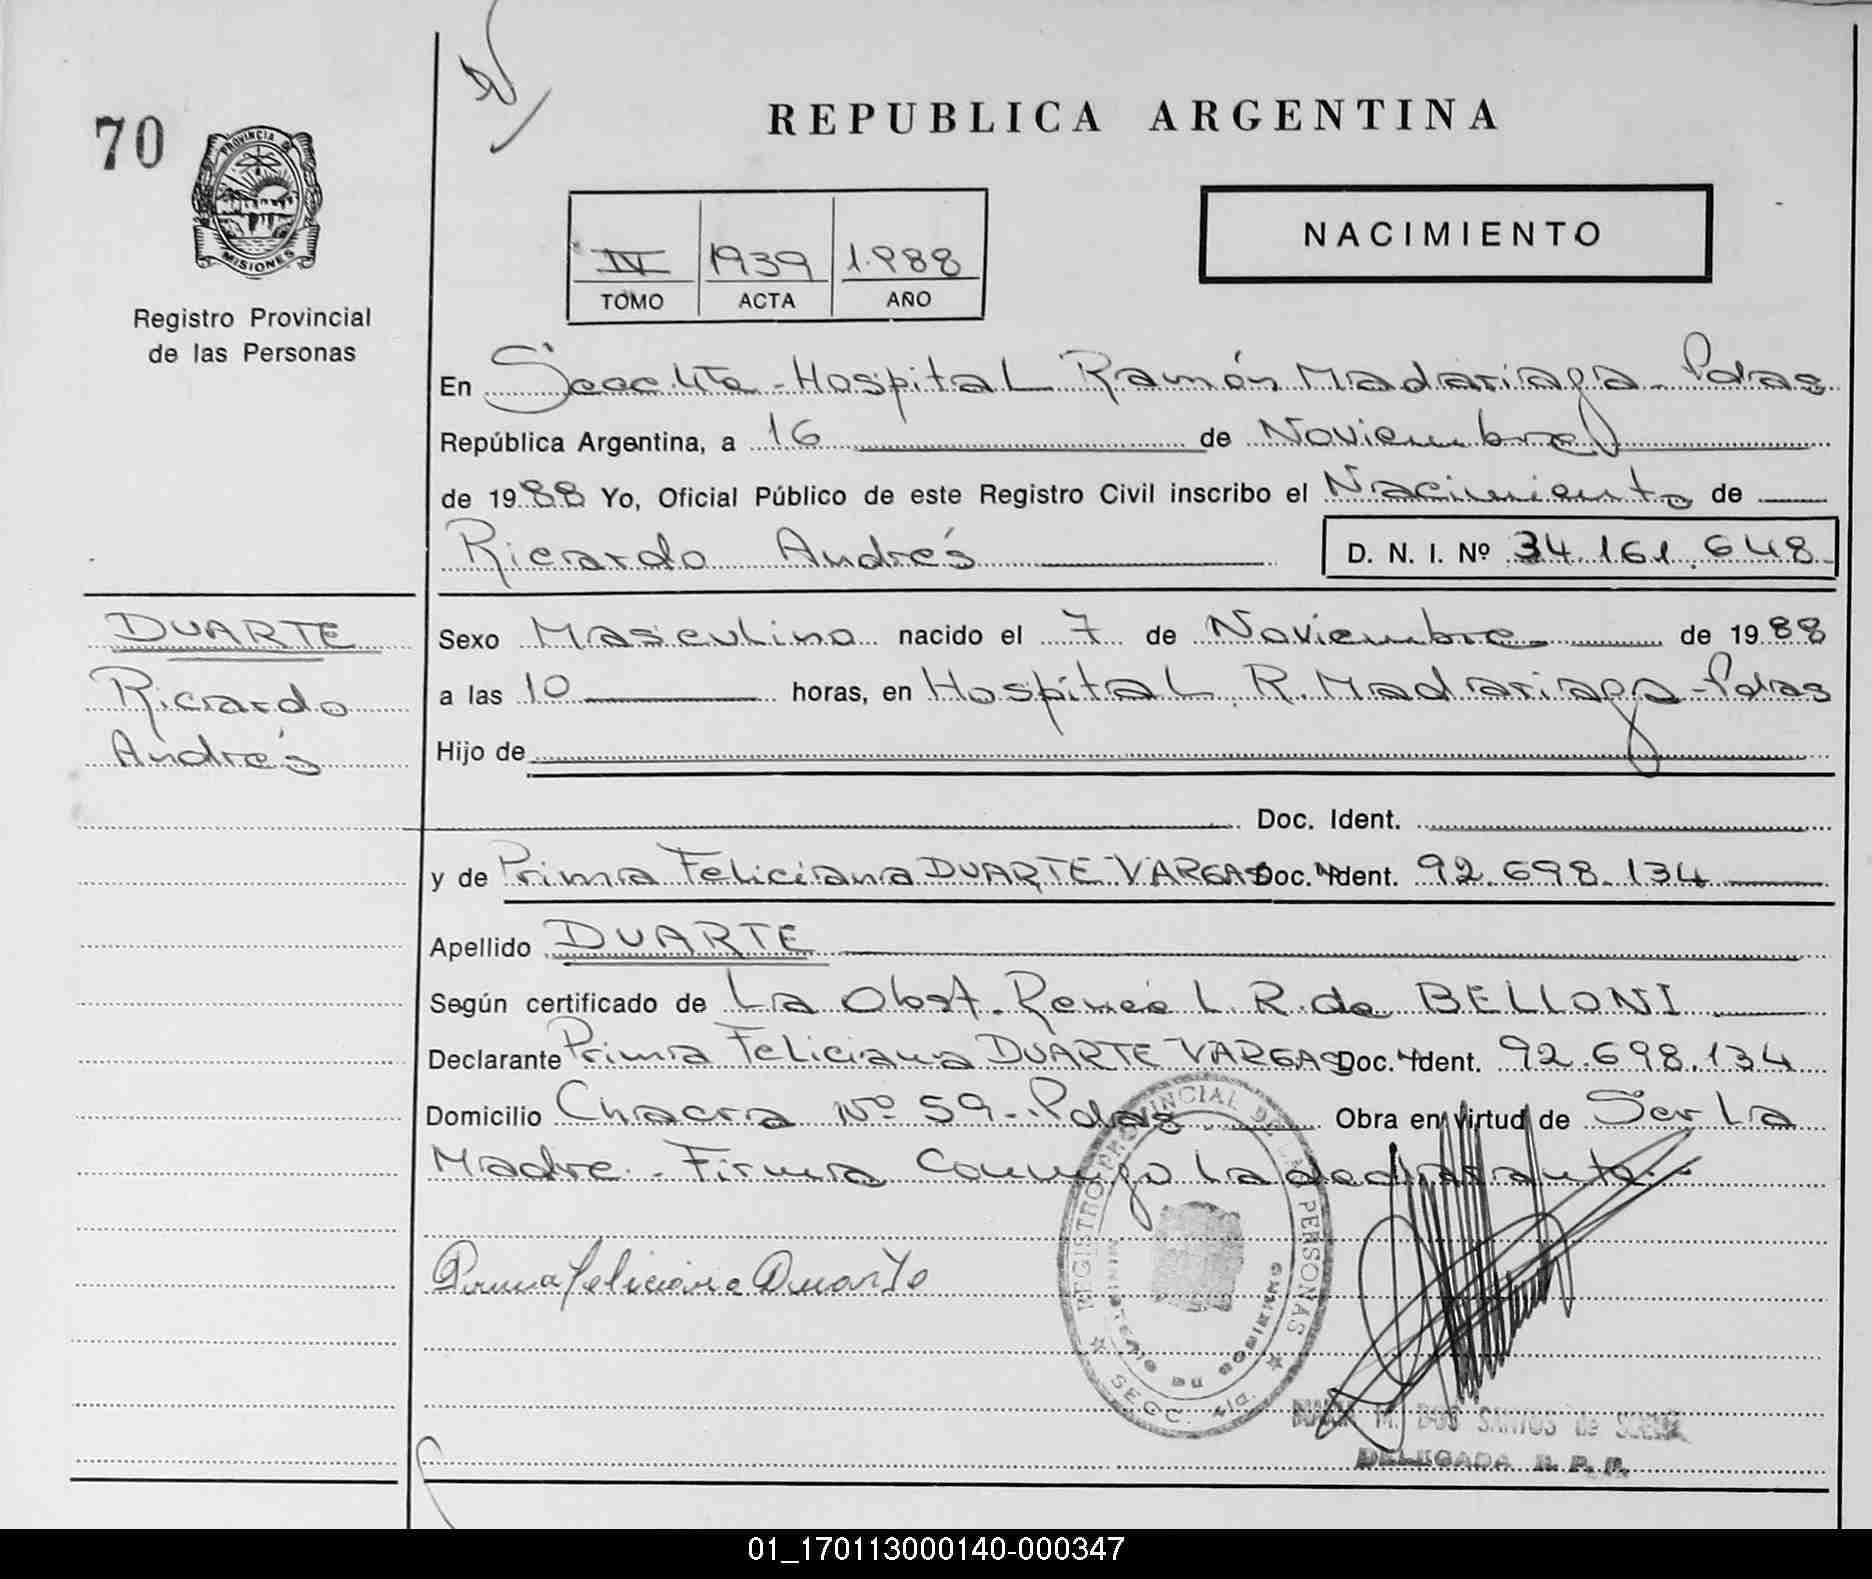 70
PROVINCIA D
MISIONES
Registro Provincial
de las Personas
REPUBLICA ARGENTINA
IV 1939 1.988
TOMO ACTA AÑO
NACIMIENTO
En Secc. 4ta - Hospital Ramón Madariaga - Pdas
República Argentina, a 16 de Noviembre
de 1988 Yo, Oficial Público de este Registro Civil inscribo el Nacimiento de
Ricardo Andrés D. N. I. Nº 34.161.648
DUARTE
Ricardo
Andrés
Sexo Masculino nacido el 7 de Noviembre de 1988
a las 10 horas, en Hospital R. Madariaga - Pdas
Hijo de
Doc. Ident.
y de Prima Feliciana DUARTE VARGAS Doc. Ident. 92.698.134
Apellido DUARTE
Según certificado de La Obst. Reneé L. R. de BELLONI
Declarante Prima Feliciana DUARTE VARGAS Doc. Ident. 92.698.134
Domicilio Chacra Nº 59 - Pdas Obra en virtud de Ser La
Madre. - Firma Conmigo La declarante. -
Prima Feliciana Duarte
REGISTRO PROVINCIAL DE LAS PERSONAS
MINISTERIO DE GOBIERNO
SECC. 4ta.
M. DOS SANTOS de
DELEGADA R. P. P.
01_170113000140-000347